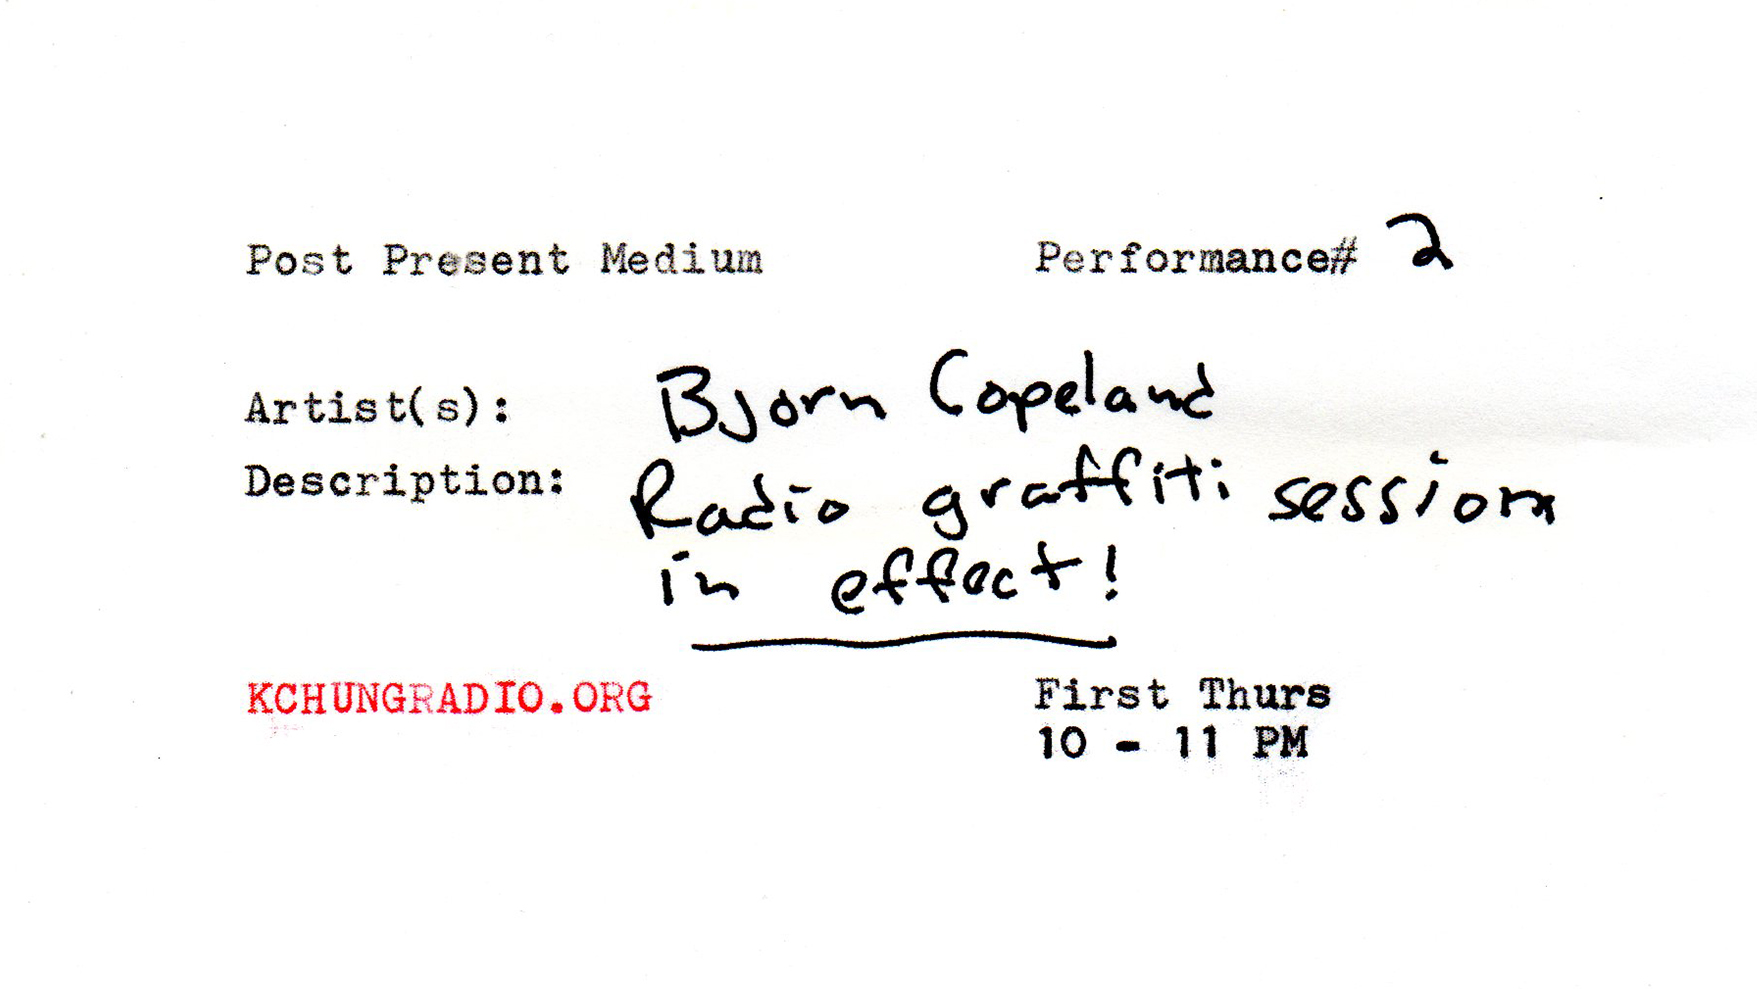 Post Present Medium Performance# 2
Artist(s): Bjorn Copeland
Description: Radio graffiti session
in effect!
KCHUNGRADIO.ORG First Thurs
10 - 11 PM